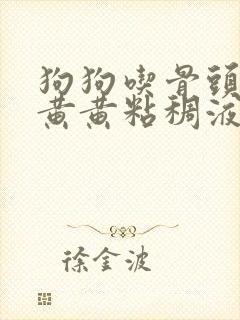 狗狗喫骨頭
黄黄粘稠液
徐金波